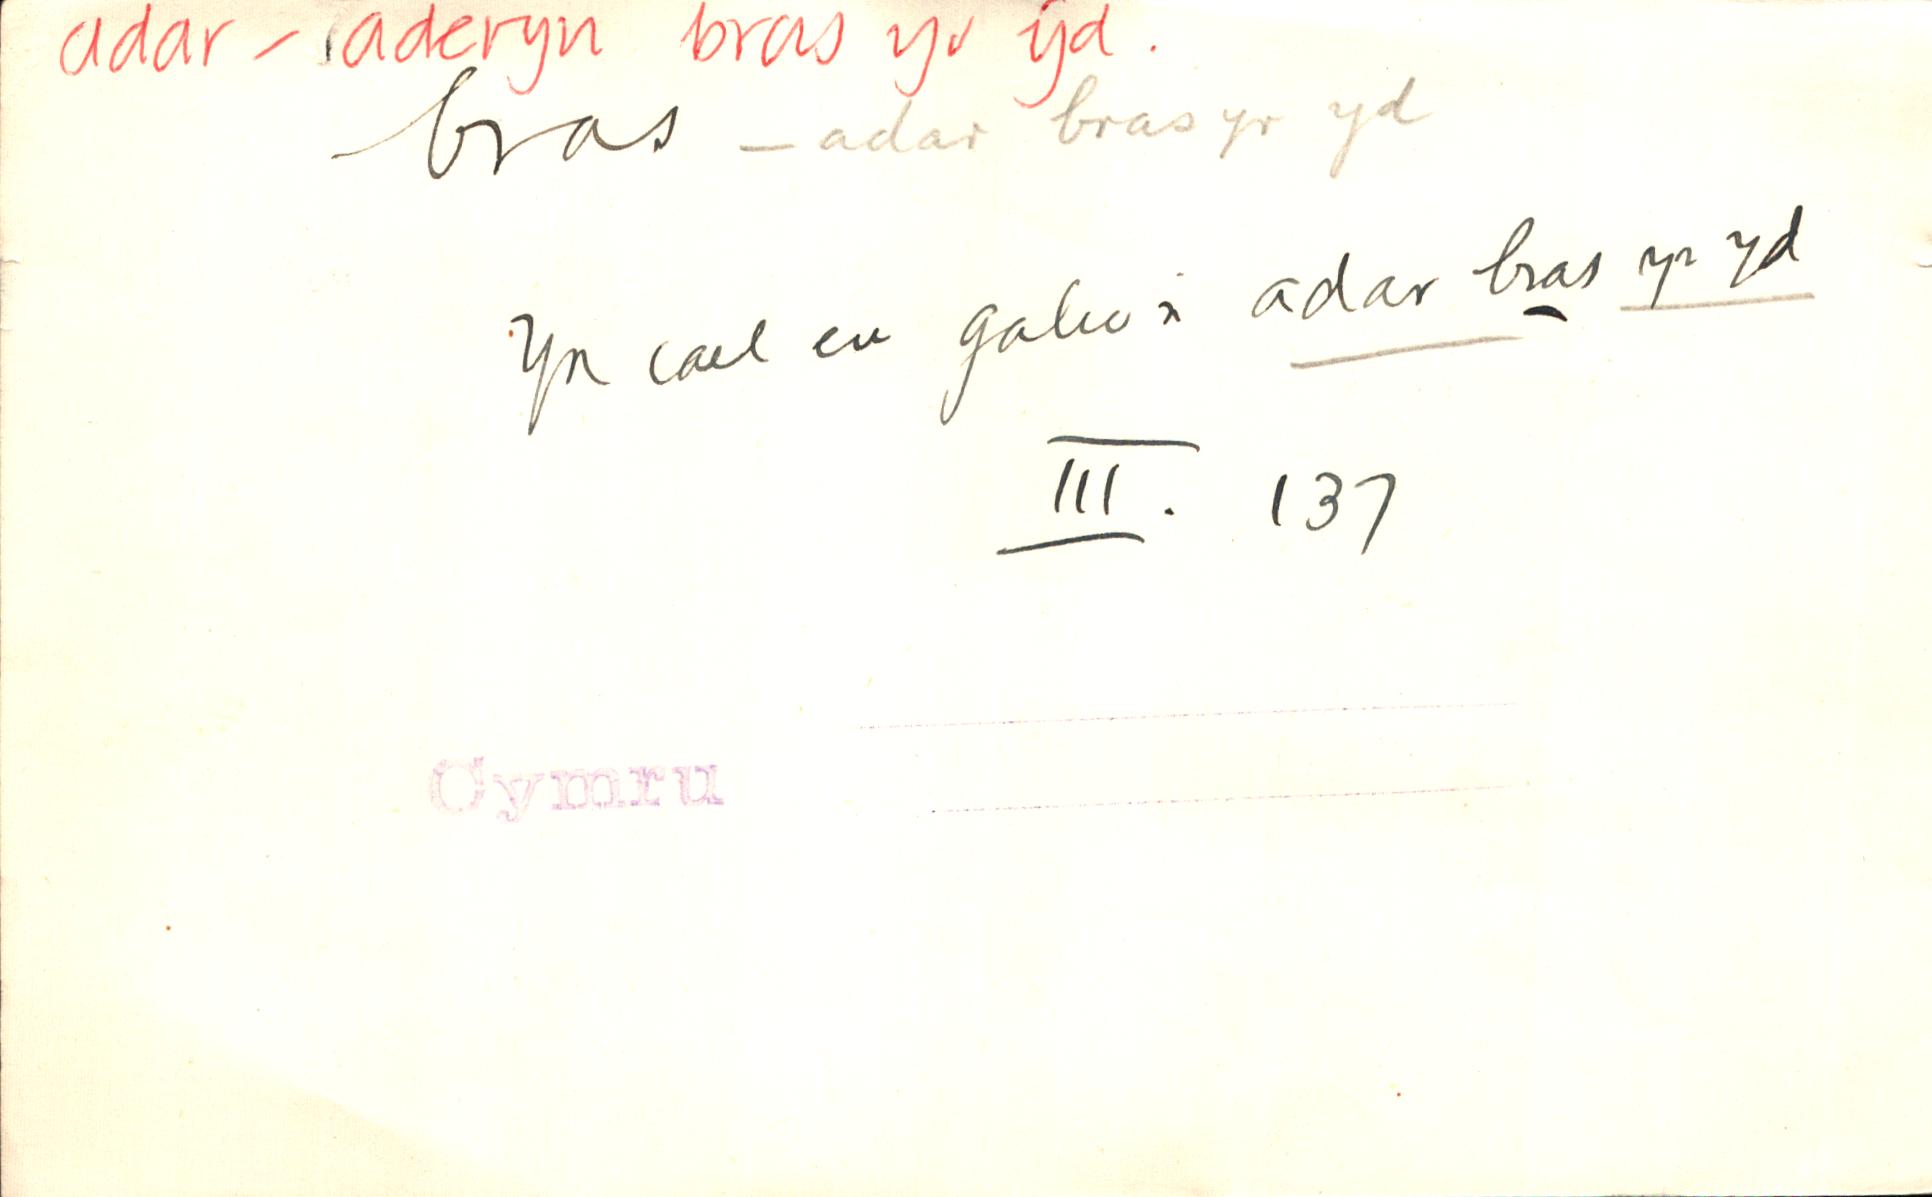 adar - aderyn bras yr ŷd.
bras - adar bras yr yd
Yn cael eu galw'n adar bras yr yd
III. 137
Cymru